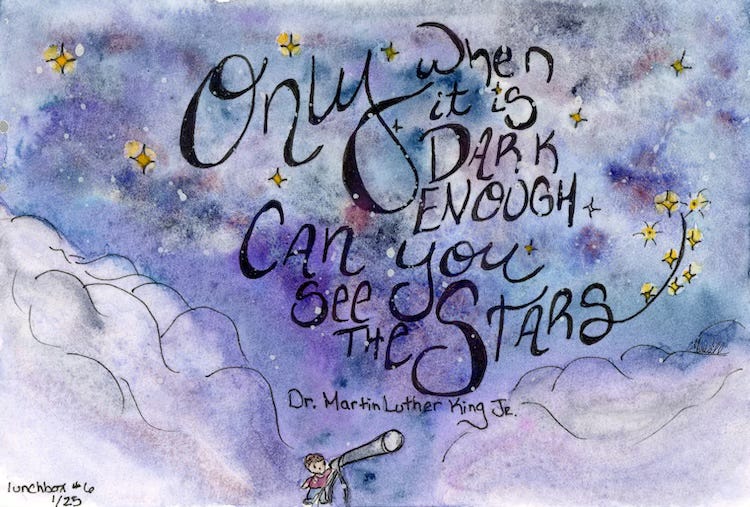 Only when
it is
DARK
ENOUGH
Can you
see
THE STARS
Dr. Martin Luther King Jr.
lunchbox #6
1/25